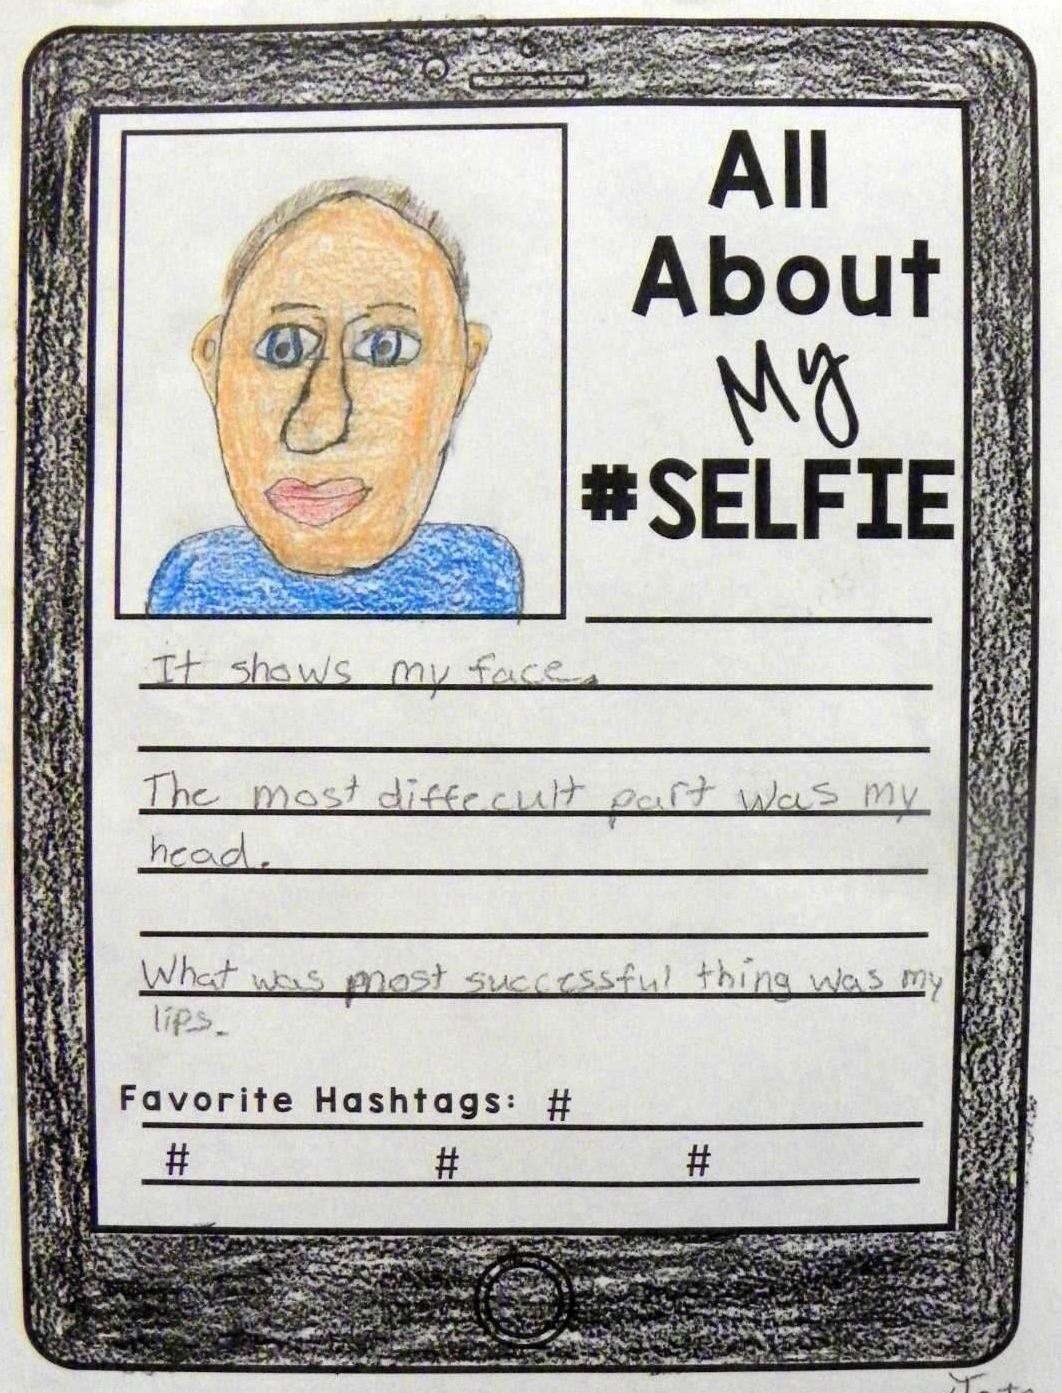 All
About
My
#SELFIE
It shows my face.
The most diffecult part was my
head.
What was most successful thing was my
lips.
Favorite Hashtags: #
# # #